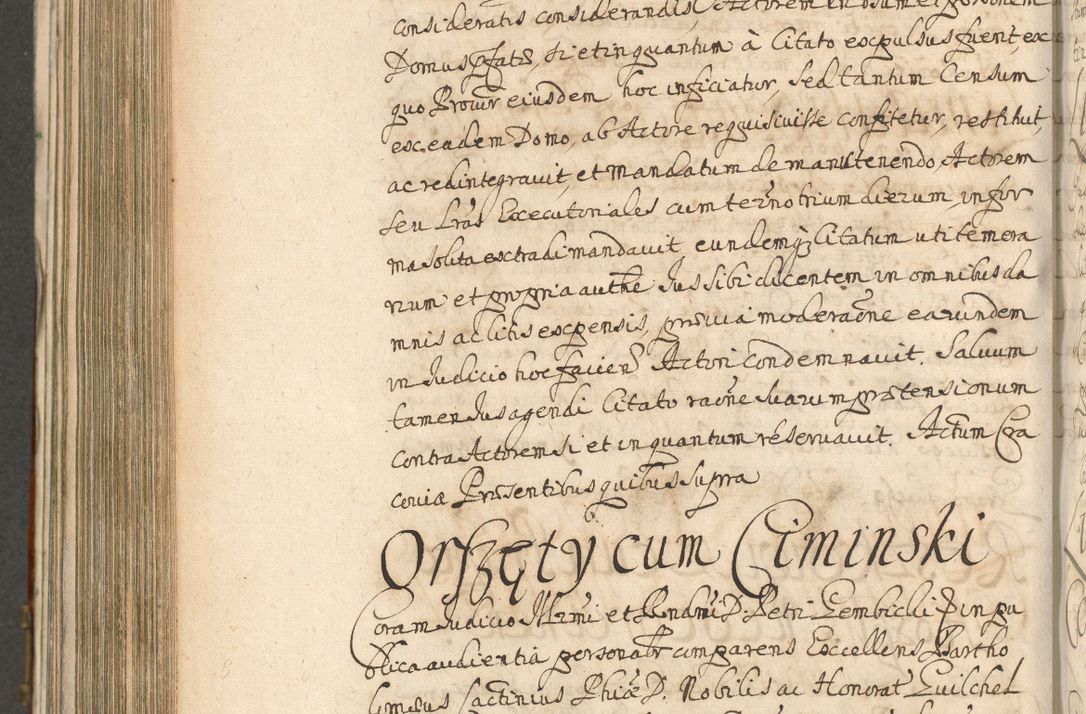 consideratis considerandis, Actorem in usum et possessionem
Domus pfatæ, si et in quantum à Citato expulsus fuerit, ex
quo Procur eiusdem hoc inficiatur, sed tantum Censum
ex eadem Domo, ab Actore requisivisse confitetur, restituit,
ac redintegravit, et Mandatum de manutenendo Actorem
seu Lras Executoriales cum terno trium dierum, in for
ma solita extradi mandavit, eundemq Citatum uti temera
rium et propria authe Jus sibi dicentem in omnibus da
mnis ac litis expensis, prævia moderaone earundem
in Judicio hoc facien Actori condemnavit. Salvum
tamen Jus agendi Citato raone suarum prætensionum
contra Actorem si et in quantum reservavit. Actum Cra
coviæ Præsentibus quibus supra
Orszęty cum Ciminski
Coram Judicio Illrmi et Rndmi D. Petri Gembicki Epi in pu
blica audientia personaltr comparens Excellens Bartho
lomæus Sactinius Phiæ D. Nobilis ac Honorat Guilhel